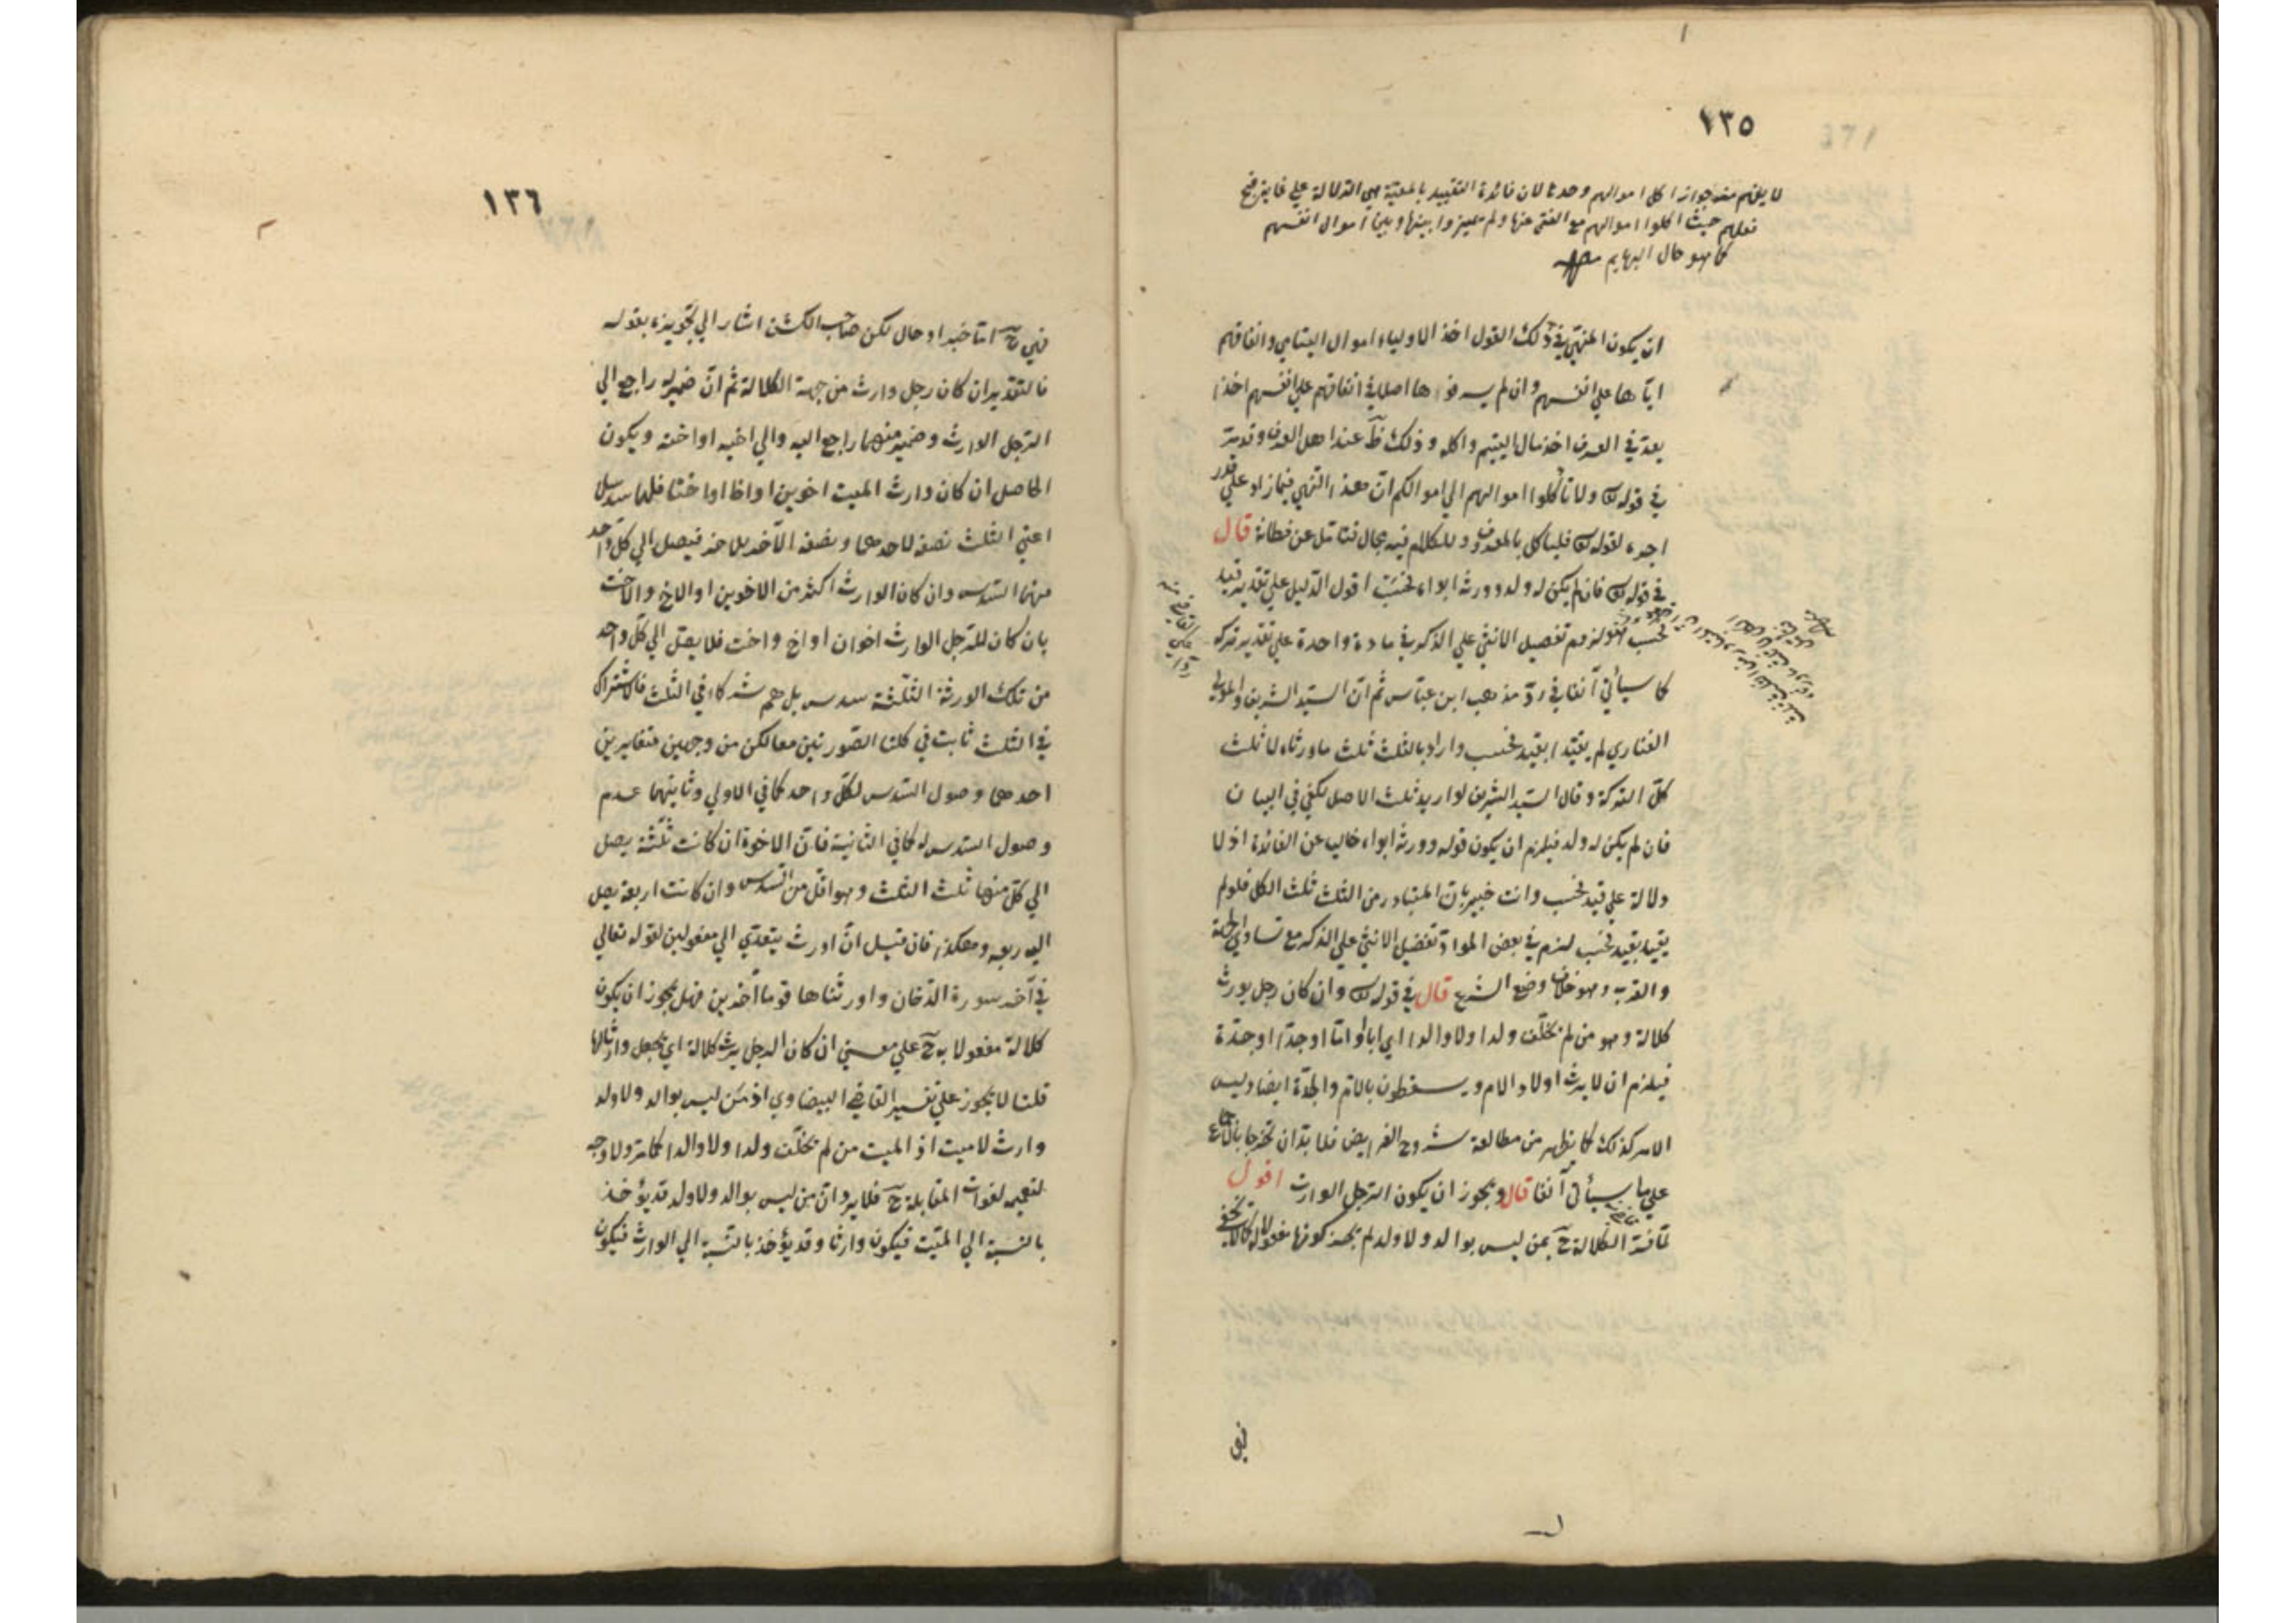 ١٣٥
لا يلزم منه جواز اكل اموالهم وحدها لان فائدة التقييد بالمعية هي الدلالة علي غاية قبح
فعلهم حيث اكلوا اموالهم مع الغني عنها ولم يميزوا بينها وبين اموال انفسهم
كما هو حال البهايم
ان يكون المنهي في ذلك القول اخذ الاولياء اموال اليتامي وانفاقهم
اياها علي انفسهم وان لم يسرفوا اصلا في انفاقهم علي انفسهم اخذا
يعد في العرف اخذ مال اليتيم واكله وذلك ظ عند اهل العرف وقد مر
في قوله تع ولا تأكلوا اموالهم الي اموالكم ان هذا النهي فيما زاد علي قدر
اجره لقوله تع فلياكل بالمعروف وللكلام فيه مجال فتامل عن فطانة قال
في قوله تع فان لم يكن له ولد وورثه ابواه فحسب اقول الدليل علي تقدير قيد
فحسب هو لزوم تفضيل الانثي علي الذكر في مادة واحدة علي تقدير تركه
كما سيأتي آنفا في رد مذهب ابن عباس ثم ان السيد الشريف والمولي
الفناري لم يقيدا بقيد فحسب وارادا بالثلث ثلث ما ورثاه لا ثلث
كل التركة وقال السيد الشريف لو اريد ثلث الاصل لكفي في البيان
فان لم يكن له ولد فيلزم ان يكون قوله وورثه ابواه خاليا عن الفائدة اذ لا
دلالة علي قيد فحسب وانت خبير بان المتبادر من الثلث ثلث الكل فلو لم
يقيد بقيد فحسب لزم في بعض المواد تفضيل الانثي علي الذكر مع تساوي الجهة
والقرب وهو خلاف وضع الشرع قال في قوله تع وان كان رجل يورث
كلالة وهو من لم يخلف ولدا ولا والدا اي ابا او اما او جدا او جدة
فيلزم ان لا يرث اولاد الام ويسقطون بالام والجدة ايضا وليس
الامر كذلك كما يظهر من مطالعة شروح الفرايض فلا بد ان تخرجا بالاجماع
علي ما سيأتي آنفا قال ويجوز ان يكون الرجل الوارث اقول
لما فسر الكلالة ح بمن ليس بوالد ولا ولد لم يجز كونها مفعولا له كما لا يخفي
فهي
١٣٦
فهي ح اما خبر او حال لكن صاحب الكشف اشار الي تجويزه بقوله
فالتقدير ان كان رجل وارث من جهة الكلالة ثم ان ضمير له راجع الي
الرجل الوارث وضمير منهما راجع اليه والي اخيه او اخته ويكون
الحاصل ان كان وارث الميت اخوين او اخا او اختا فلهما سدسان
اعني الثلث نصفه لاحدهما ونصفه الآخر للآخر فيصل الي كل واحد
منهما السدس وان كان الوارث اكثر من الاخوين او الاخ والاخت
بان كان للرجل الوارث اخوان او اخ واخت فلا يصل الي كل واحد
من تلك الورثة الثلثة سدس بل هم شركاء في الثلث فالاشتراك
في الثلث ثابت في كلتا الصورتين معا لكن من وجهين متغايرين
احدهما وصول السدس لكل واحد كما في الاولي وثانيهما عدم
وصول السدس له كما في الثانية فان الاخوة ان كانت ثلثة يصل
الي كل منها ثلث الثلث وهو اقل من السدس وان كانت اربعة يصل
اليه ربعه وهكذا فان قيل ان اورث يتعدي الي مفعولين لقوله تعالي
في آخر سورة الدخان واورثناها قوما آخرين فهل يجوز ان يكون
كلالة مفعولا به ح علي معني ان كان الرجل يرث كلالة اي يجعل وارثا لها
قلنا لا يجوز علي تفسير القاضي البيضاوي اذ من ليس بوالد ولا ولد
وارث لا ميت اذ الميت من لم يخلف ولدا ولا والدا كما مر ولا وجه
لتعميمه لفوات المقابلة ح فلا يرد ان من ليس بوالد ولا ولد قد يؤخذ
بالنسبة الي الميت فيكون وارثا وقد يؤخذ بالنسبة الي الوارث فيكون